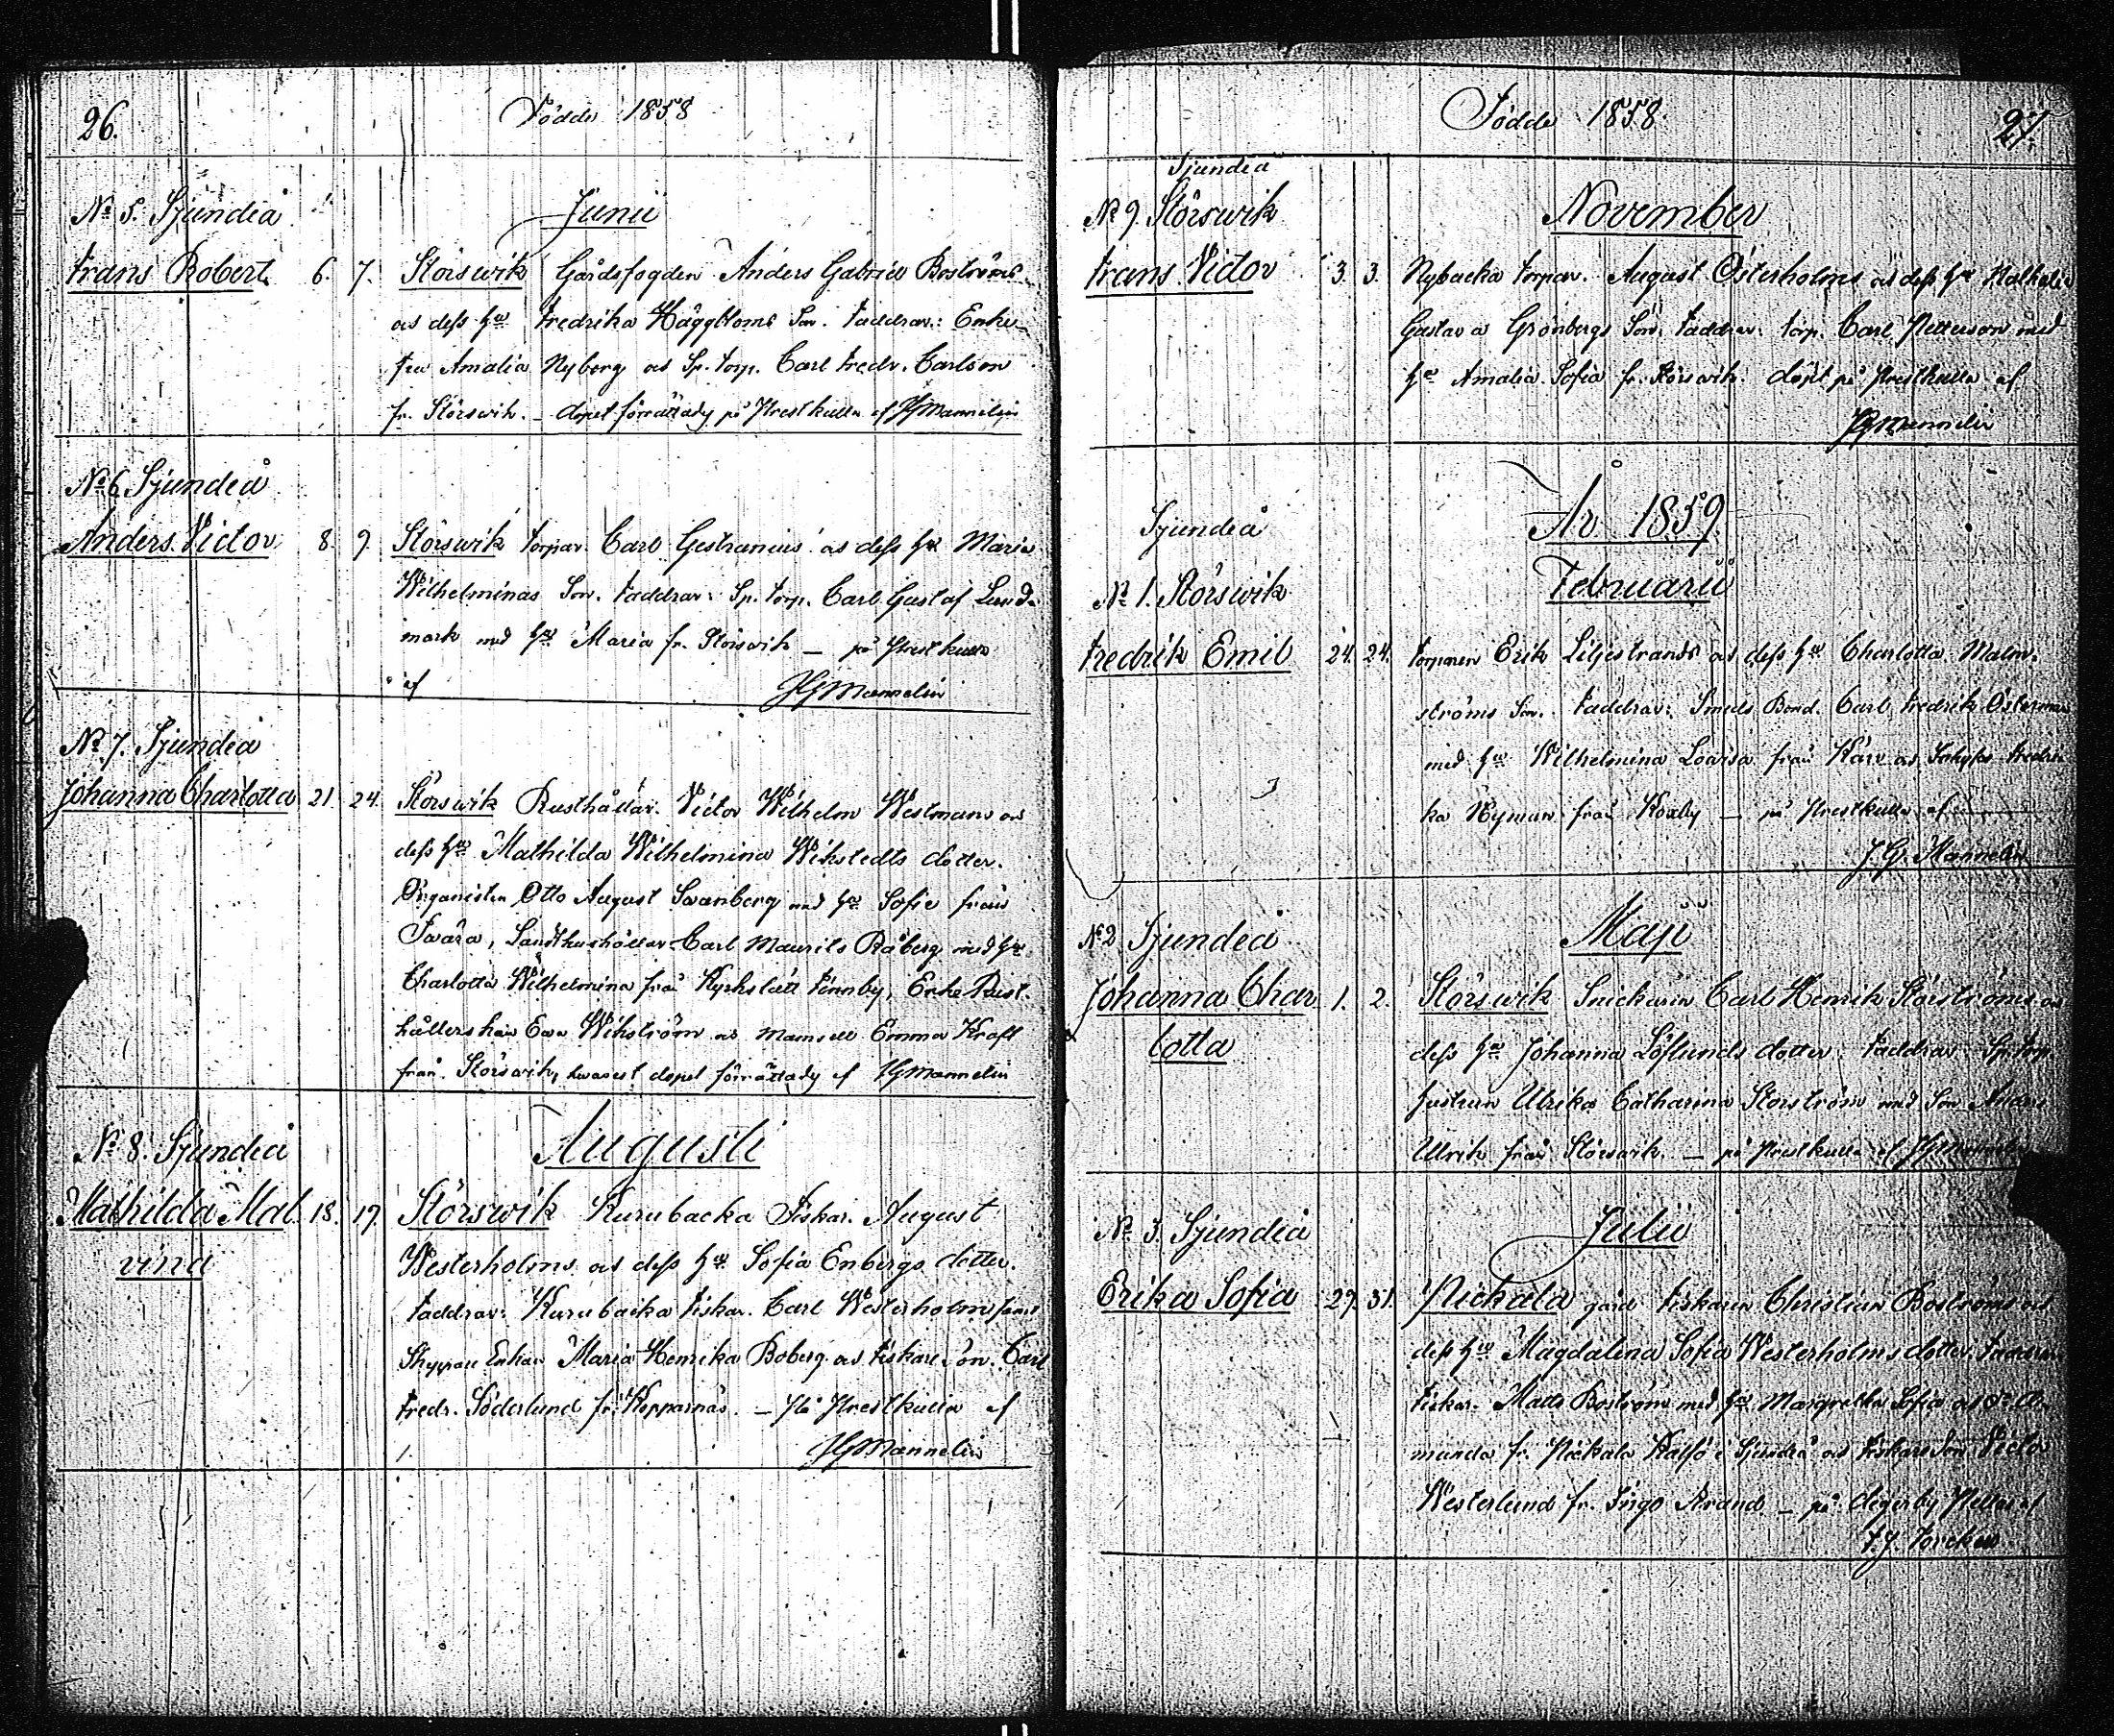 26.
Födde 1858
No 5. Sjundeå
Junii
Frans Robert 6. 7. Störswik Gårdsfogden Anders Gabriel Boströms
och dess hu Fredrika Häggbloms Son. Faddrar: Enke-
fru Amalia Nyberg och Sp. torp. Carl Fredr. Carlson
fr. Störswik. – dopet förrättadt på Prestkulla af JGMannelin
No 6 Sjundeå
Anders Victor 8. 9. Störswik torpar. Carl Gestranius och dess hu Maria
Wilhelminas Son. Faddrar: Sp. torp. Carl Gustaf Lund-
mark med hu Maria fr. Störswik – på Prestkulla
af JGMannelin
No 7. Sjundeå
Johanna Charlotta 21. 24. Störswik Rusthållar. Victor Wilhelm Westmans och
dess hu Mathilda Wilhelmina Wikstedts dotter.
Organisten Otto August Swanberg med hu Sofie från
Carl Maurits Råberg med hu
Charlotta Wilhelmina från Kyrkslätt Finnby, Enke Rust-
hållerskan Ewa Wikström och Mamsell Emma Kraft
från Störswik, hwarest dopet förrättady af JGMannelin
Augusti
No 8. Sjundeå
Mathilda Mal- 18. 19. Störswik Kurubacka Fiskar. August
vina
Westerholms och dess hu Sofia Enbergs dotter.
Faddrar: Kurubacka Fiskar. Carl Westerholm samt
Enkan Maria Henrika Boberg och Fiskare Son. Carl
Fredr. Söderlund fr. Kopparnäs. – På Prestkulla af
JGMannelin
Födde 1858.
27.
Sjundeå
No 9. Störswik
November
Frans Victor 3. 3. Nybacka torpar. August Österholms och dess hu
Gustava Grönbergs Son. Faddrar: torp. Carl Petterson med
hu Amalia Sofia fr. Störswik. döpt på Prestkulla af
JGMannelin
År 1859
Sjundeå
Februarii
No 1. Störswik
Fredrik Emil 24. 24. torparen Erik Liljestrands och dess hu Charlotta Malm-
ströms Son. Faddrar: Smeds Bond. Carl Fredrik Österman
med hu Wilhelmina Lovisa från Kärr och Fredri-
ka Nyman från Koxby – på Prestkulla af
J. G. Mannelin
Maji
No 2 Sjundeå
Johanna Char 1. 2. Störswik Snickaren Carl Henrik Störströms och
lotta
dess hu Johanna Löflunds dotter: Faddrar Sp. torp.
hustrun Ulrika Catharina Störström med Son Anders
Ulrik från Störswik. – på Prestkulla af JGMannelin
Julii
No 3. Sjundeå
Erika Sofia 29. 31. Pickala gård Fiskaren Christian Boströms och
dess hu Magdalena Sofia Westerholms dotter. Faddrar
Fiskar. Matts Boström med hu Margretha Sofia och
munda fr. Pickala Kalfö i Sjundeå och Fiskare Son Victor
Westerlund fr. Ingo Strand – på Degerby af
F. J.